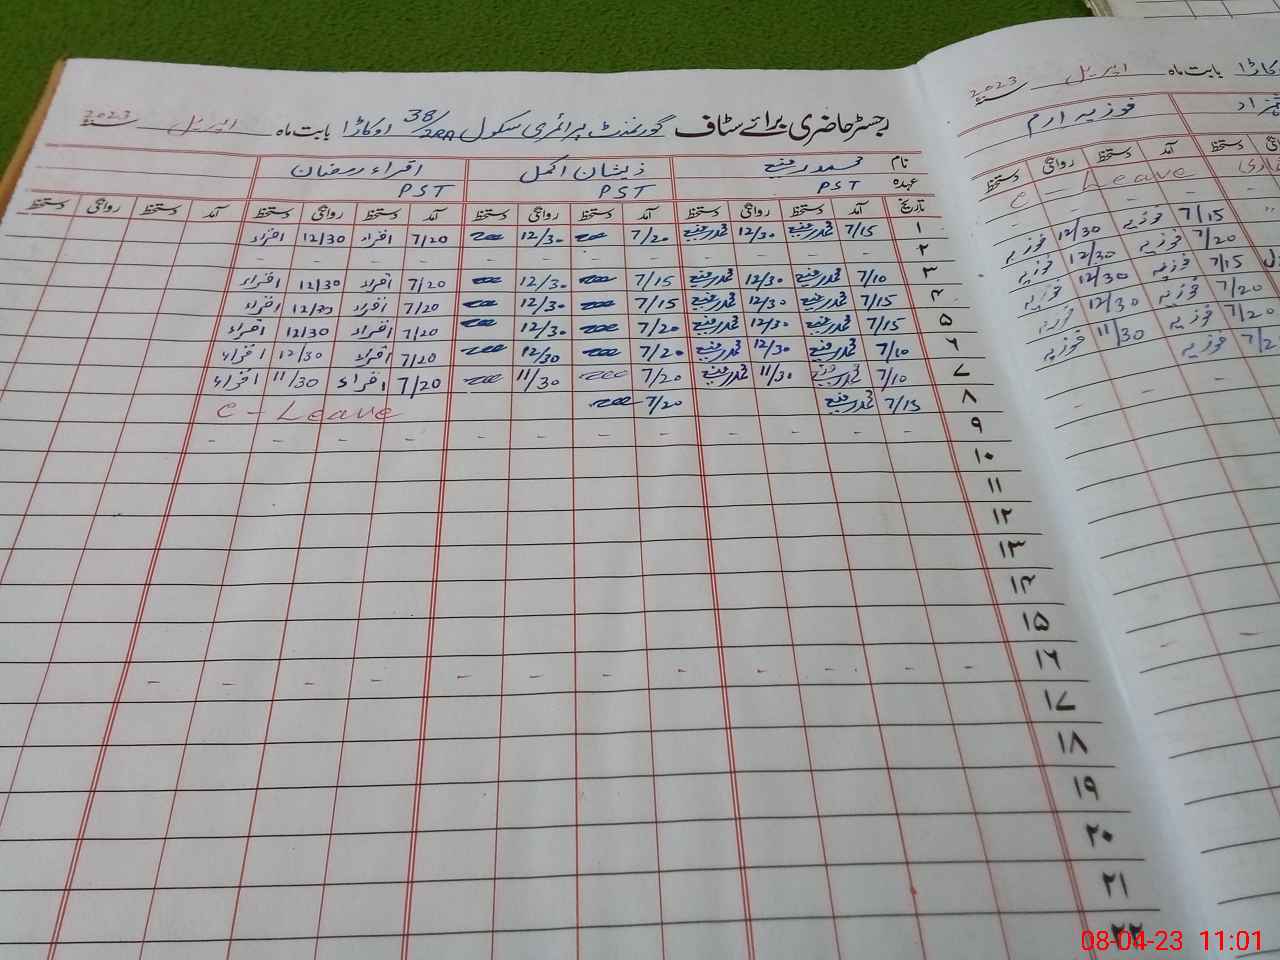 رجسٹر حاضری برائے سٹاف گورنمنٹ پرائمری سکول 38/2RA اوکاڑا بابت ماہ اپریل سنہ 2023
نام محمد رفیع ذیشان اکمل اقراء رمضان
عہدہ PST PST PST
تاریخ آمد دستخط روانگی دستخط آمد دستخط روانگی دستخط آمد دستخط روانگی دستخط آمد دستخط روانگی دستخط
۱ 7/15 محمد رفیع 12/30 محمد رفیع 7/20 12/30 7/20 اقراء 12/30 اقراء
۲ - - - - - - - - - - - -
۳ 7/10 محمد رفیع 12/30 محمد رفیع 7/15 12/30 7/20 اقراء 12/30 اقراء
۴ 7/15 محمد رفیع 12/30 محمد رفیع 7/15 12/30 7/20 اقراء 12/30 اقراء
۵ 7/15 محمد رفیع 12/30 محمد رفیع 7/20 12/30 7/20 اقراء 12/30 اقراء
۶ 7/10 محمد رفیع 12/30 محمد رفیع 7/20 12/30 7/20 اقراء 12/30 اقراء
۷ 7/10 محمد رفیع 11/30 محمد رفیع 7/20 11/30 7/20 اقراء 11/30 اقراء
۸ 7/15 محمد رفیع 7/20 C - Leave
۹ - - - - - - - - - - - -
۱۰
۱۱
۱۲
۱۳
۱۴
۱۵
۱۶ - - - - - - - - - - - - - - - -
۱۷
۱۸
۱۹
۲۰
۲۱
۲۲
اوکاڑا بابت ماہ اپریل سنہ 2023
فوزیہ ارم
دستخط آمد دستخط روانگی دستخط
C - Leave
7/15 فوزیہ 12/30 فوزیہ
7/20 فوزیہ 12/30 فوزیہ
7/15 فوزیہ 12/30 فوزیہ
7/20 فوزیہ 12/30 فوزیہ
7/20 فوزیہ 11/30 فوزیہ
فوزیہ
08-04-23 11:01